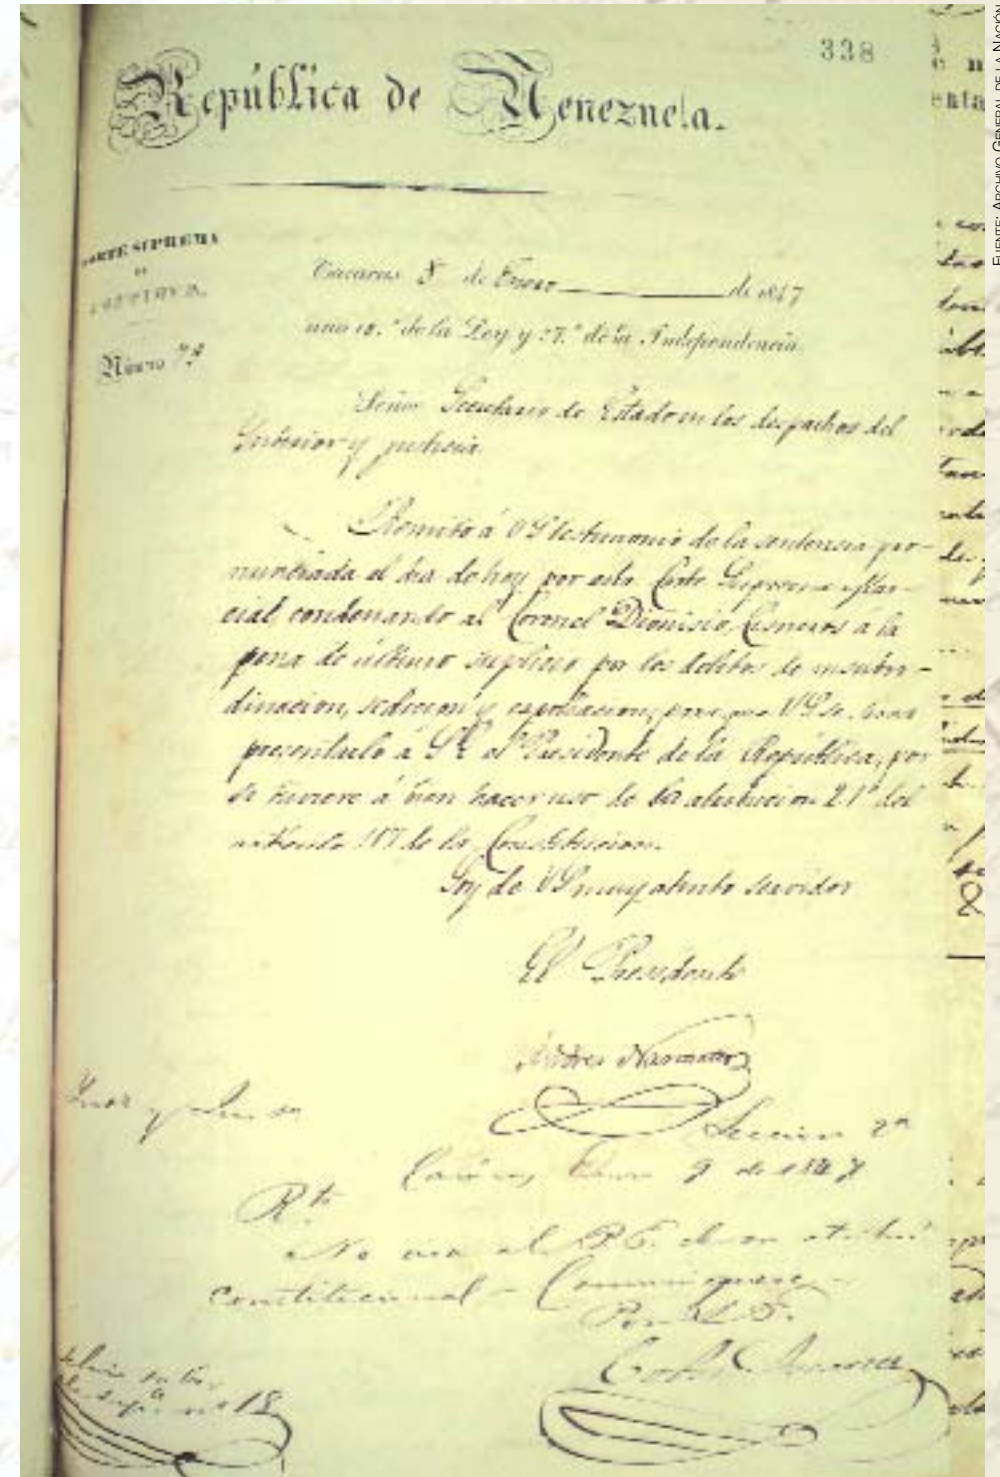 338
República de Venezuela.
CORTE SUPREMA
DE
JUSTICIA.
Número 7ª
Caracas 8 de Enero de 1847
año 18.º de la Ley y 37.º de la Independencia.
Señor Secretario de Estado en los despachos del
Interior y justicia.
Remito á VS testimonio de la sentencia pro-
nunciada el dia de hoy por esta Corte Suprema Mar-
cial condenando al Coronel Dionisio Cisneros á la
pena de último suplicio por los delitos de insubor-
dinacion, sedicion y espoliacion, para que VS se sirva
presentarlo á S.E. el Presidente de la República, por
si tuviere á bien hacer uso de la atribucion 21ª del
artículo 117 de la Constitucion.
Soy de VS muy atento servidor
El Presidente
Andres Narvarte
Seccion 2ª
Enero 9 de 1847
No usa el P.E. de su
constitucional - Comuniquese -
Por S.E.
FUENTE: ARCHIVO GENERAL DE LA NACIÓN